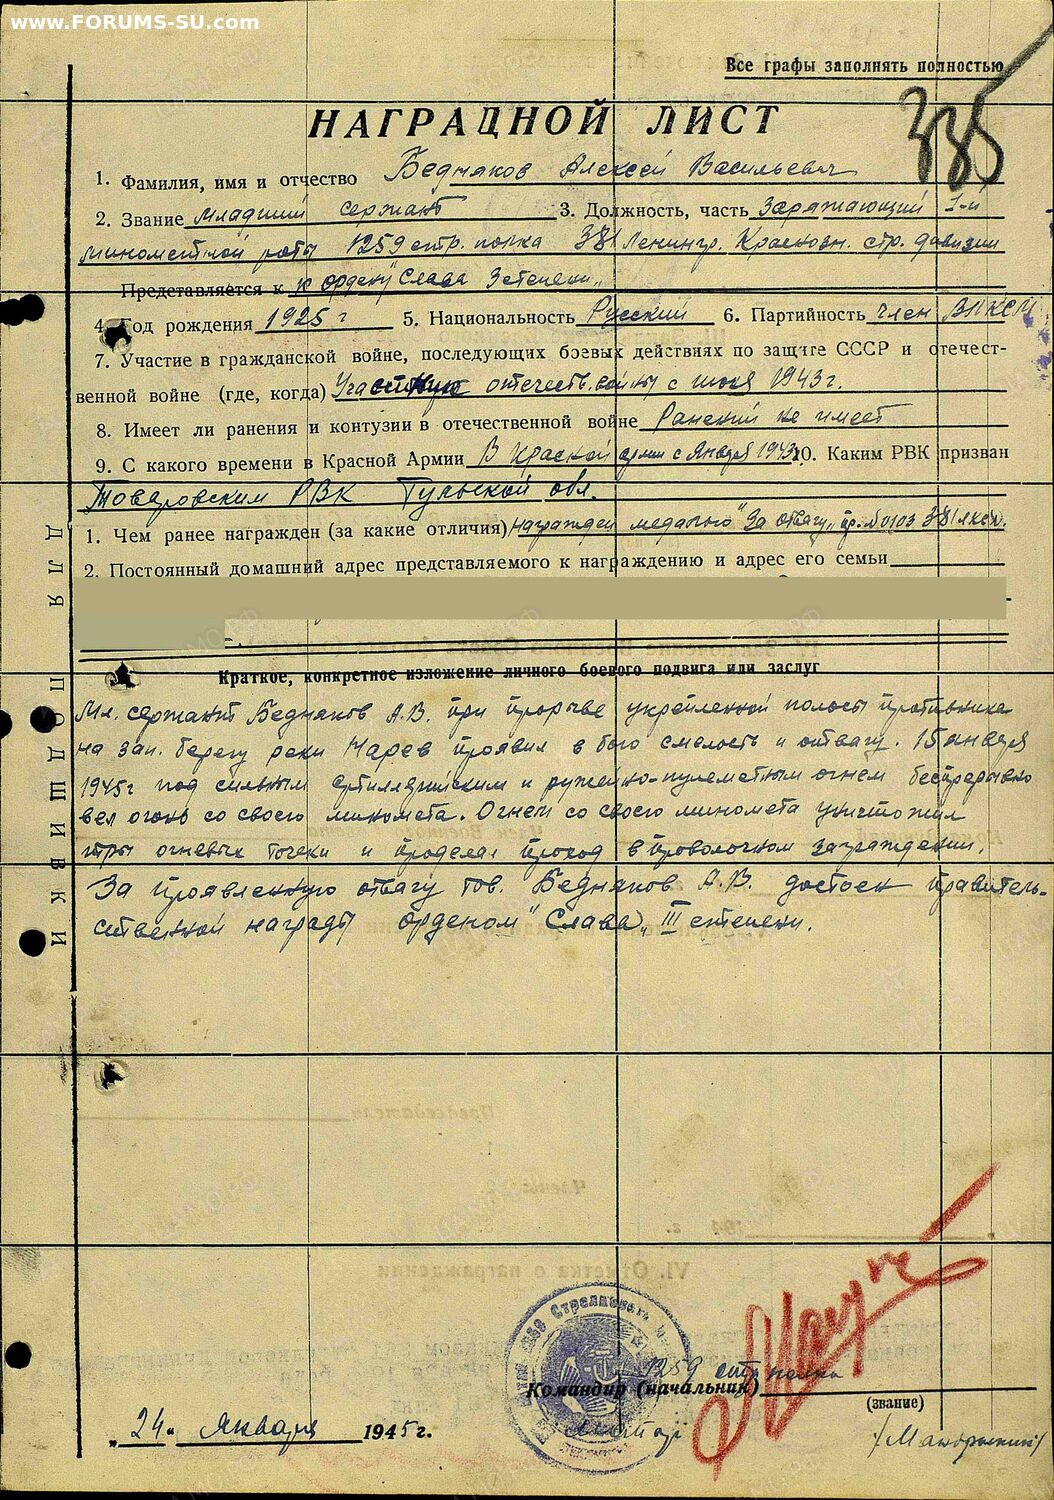 www.FORUMS-SU.com
Все графы заполнять полностью
335
НАГРАДНОЙ ЛИСТ
1. Фамилия, имя и отчество Бедняков Алексей Васильевич
2. Звание младший сержант 3. Должность, часть Заряжающий 1-й
минометной роты 1259 стр. полка 381 Ленингр. Краснозн. стр. дивизии
Представляется к к ордену "Слава 3 степени"
4. Год рождения 1925 г 5. Национальность Русский 6. Партийность член ВЛКСМ
7. Участие в гражданской войне, последующих боевых действиях по защите СССР и отечест-
венной войне (где, когда) Участник отечеств. войны с июля 1943 г.
8. Имеет ли ранения и контузии в отечественной войне Ранений не имеет
9. С какого времени в Красной Армии В Красной армии с Января 1943 10. Каким РВК призван
Товарковским РВК Тульской обл.
1. Чем ранее награжден (за какие отличия) награжден медалью "За отвагу" пр. №0103 381
2. Постоянный домашний адрес представляемого к награждению и адрес его семьи
ДЛЯ ПОДШИВКИ
Краткое, конкретное изложение личного боевого подвига или заслуг
Мл. сержант Бедняков А.В. при прорыве укрепленной полосы противника
на зап. берегу реки Нарев проявил в бою смелость и отвагу. 15 января
1945г под сильным артиллерийским и ружейно-пулеметным огнем беспрерывно
вел огонь со своего миномета. Огнем со своего миномета уничтожил
три огневых точки и проделал проход в проволочном заграждении.
За проявленную отвагу тов. Бедняков А.В. достоен правитель-
ственной награды орденом "Слава" III степени.
1259 стр полка
Командир (начальник)
(звание)
"24" Января 1945 г.